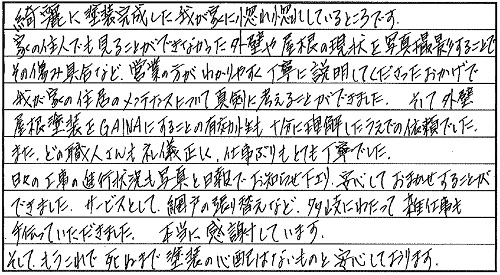 綺麗に塗装完成した我が家に惚れ惚れしているところです。
家の住人でも見ることができなかった外壁や屋根の現状を写真撮影することで
その傷み具合など、営業の方がわかりやすく丁寧に説明してくださったおかげで
我が家の住居のメンテナンスについて真剣に考えることができました。 そして外壁
屋根塗装をGAINAにすることの有効性も十分に理解したうえでの依頼でした。
また、どの職人さんも礼儀正しく、仕事ぶりもとても丁寧でした。
日々の工事の進行状況も写真と日報でお知らせ下さり、安心しておまかせすることが
できました。 サービスとして、網戸の張り替えなど、多岐にわたって雑仕事も
手伝っていただきました。 本当に感謝しています。
そして、もうこれで死ぬまで塗装の心配はないものと安心しております。